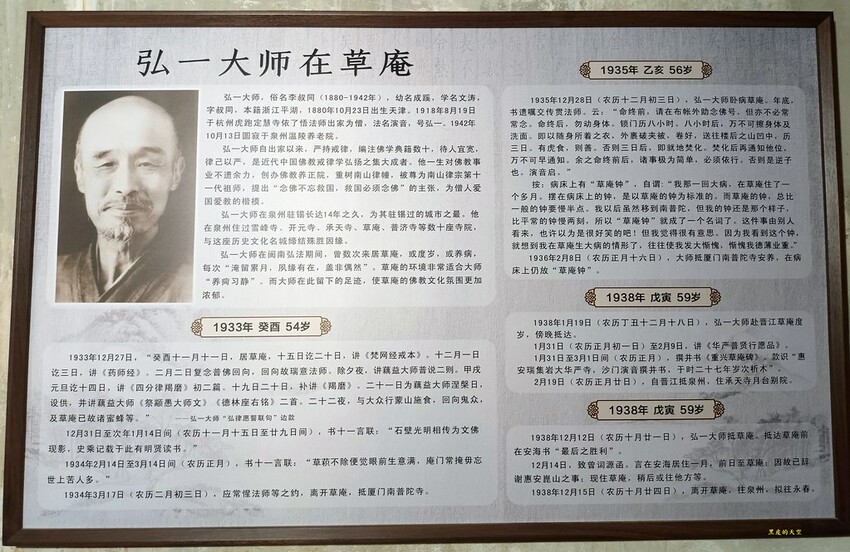 弘一大师在草庵
弘一大师，俗名李叔同（1880-1942年），幼名成蹊，学名文涛，
字叔同，本籍浙江平湖，1880年10月23日出生天津。1918年8月19日
于杭州虎跑定慧寺依了悟法师出家为僧，法名演音，号弘一。1942年
10月13日圆寂于泉州温陵养老院。
弘一大师自出家以来，严持戒律，编注佛学典籍数十，待人宜宽，
律己以严，是近代中国佛教戒律学弘扬之集大成者。他一生对佛教事
业不遗余力，创办佛教养正院，重树南山律幢，被尊为南山律宗第十
一代祖师，提出“念佛不忘救国，救国必须念佛”的主张，为僧人爱
国爱教的楷模。
弘一大师在泉州驻锡长达14年之久，为其驻锡过的城市之最。他
在泉州住过雪峰寺、开元寺、承天寺、草庵、普济寺等数十座寺院，
与这座历史文化名城缔结殊胜因缘。
弘一大师在闽南弘法期间，曾数次来居草庵，或度岁，或养病，
每次“淹留累月，夙缘有在，盖非偶然”。草庵的环境非常适合大师
“养疴习静”。而大师在此留下的足迹，使草庵的佛教文化氛围更加
浓郁。
1933年 癸酉 54岁
1933年12月27日，“癸酉十一月十一日，居草庵，十五日讫二十日，讲《梵网经戒本》。十二月一日
讫三日，讲《药师经》。二月二日复念普佛回向，回向故瑞意法师。除夕夜，讲蕅益大师普说二则。甲戌
元旦讫十四日，讲《四分律羯磨》初二篇。十九日二十日，补讲《羯磨》。二十一日为蕅益大师涅槃日，
设供，并讲蕅益大师《祭颛愚大师文》《德林座右铭》二首。二十二夜，与大众行蒙山施食，回向鬼众，
及草庵已故诸蜜蜂等。”　——弘一大师“弘律愿誓联句”边款
12月31日至次年1月14日间（农历十一月十五日至廿九日间），书十一言联：“石壁光明相传为文佛
现影，史乘记载于此有明贤读书。”
1934年2月14日至3月14日间（农历正月），书十一言联：“草积不除便觉眼前生意满，庵门常掩毋忘
世上苦人多。”
1934年3月17日（农历二月初三日），应常惺法师等之约，离开草庵，抵厦门南普陀寺。
1935年 乙亥 56岁
1935年12月28日（农历十二月初三日），弘一大师卧病草庵。年底，
书遗嘱交传贯法师。云：“命终前，请在布帐外助念佛号。但亦不必常
常念。命终后，勿动身体。锁门历八小时，八小时后，万不可擦身体及
洗面。即以随身所着之衣，外裹破夹被，卷好，送往楼后之山凹中，历
三日。有虎食，则善。否则三日后，即就地焚化。焚化后再通知他位，
万不可早通知。余之命终前后，诸事极为简单，必须依行。否则是逆子
也，演音启。”
按：病床上有“草庵钟”，自谓：“我那一回大病，在草庵住了一
个多月。摆在病床上的钟，是以草庵的钟为标准的。而草庵的钟，总比
一般的钟要慢半点。我以后虽然移到南普陀，但我的钟还是那个样子，
比平常的钟慢两刻，所以“草庵钟”就成了一个名词了。这件事由别人
看来，也许以为是很好笑的吧！但我觉得很有意思。因为我看到这个钟，
就想到我在草庵生大病的情形了，往往使我发大惭愧，惭愧我德薄业重。”
1936年2月8日（农历正月十六日），大师抵厦门南普陀寺安养，在病
床上仍放“草庵钟”。
1938年 戊寅 59岁
1938年1月19日（农历丁丑十二月十八日），弘一大师赴晋江草庵度
岁，傍晚抵达。
1月31日（农历正月初一日）至2月9日，讲《华严普贤行愿品》。
1月31日至3月1日间（农历正月），撰并书《重兴草庵碑》。款识“惠
安瑞集岩大华严寺，沙门演音撰并书，于时二十七年岁次析木”。
2月19日（农历正月廿日），自晋江抵泉州，住承天寺月台别院。
1938年 戊寅 59岁
1938年12月12日（农历十月廿一日），弘一大师抵草庵。抵达草庵前
在安海书“最后之胜利”。
12月14日，致曾词源函。言在安海居住一月，前日至草庵；因故已辞
谢惠安崑山之事；现住草庵，稍后或往他方等。
1938年12月15日（农历十月廿四日），离开草庵，往泉州，拟往永春。
黑皮的天空